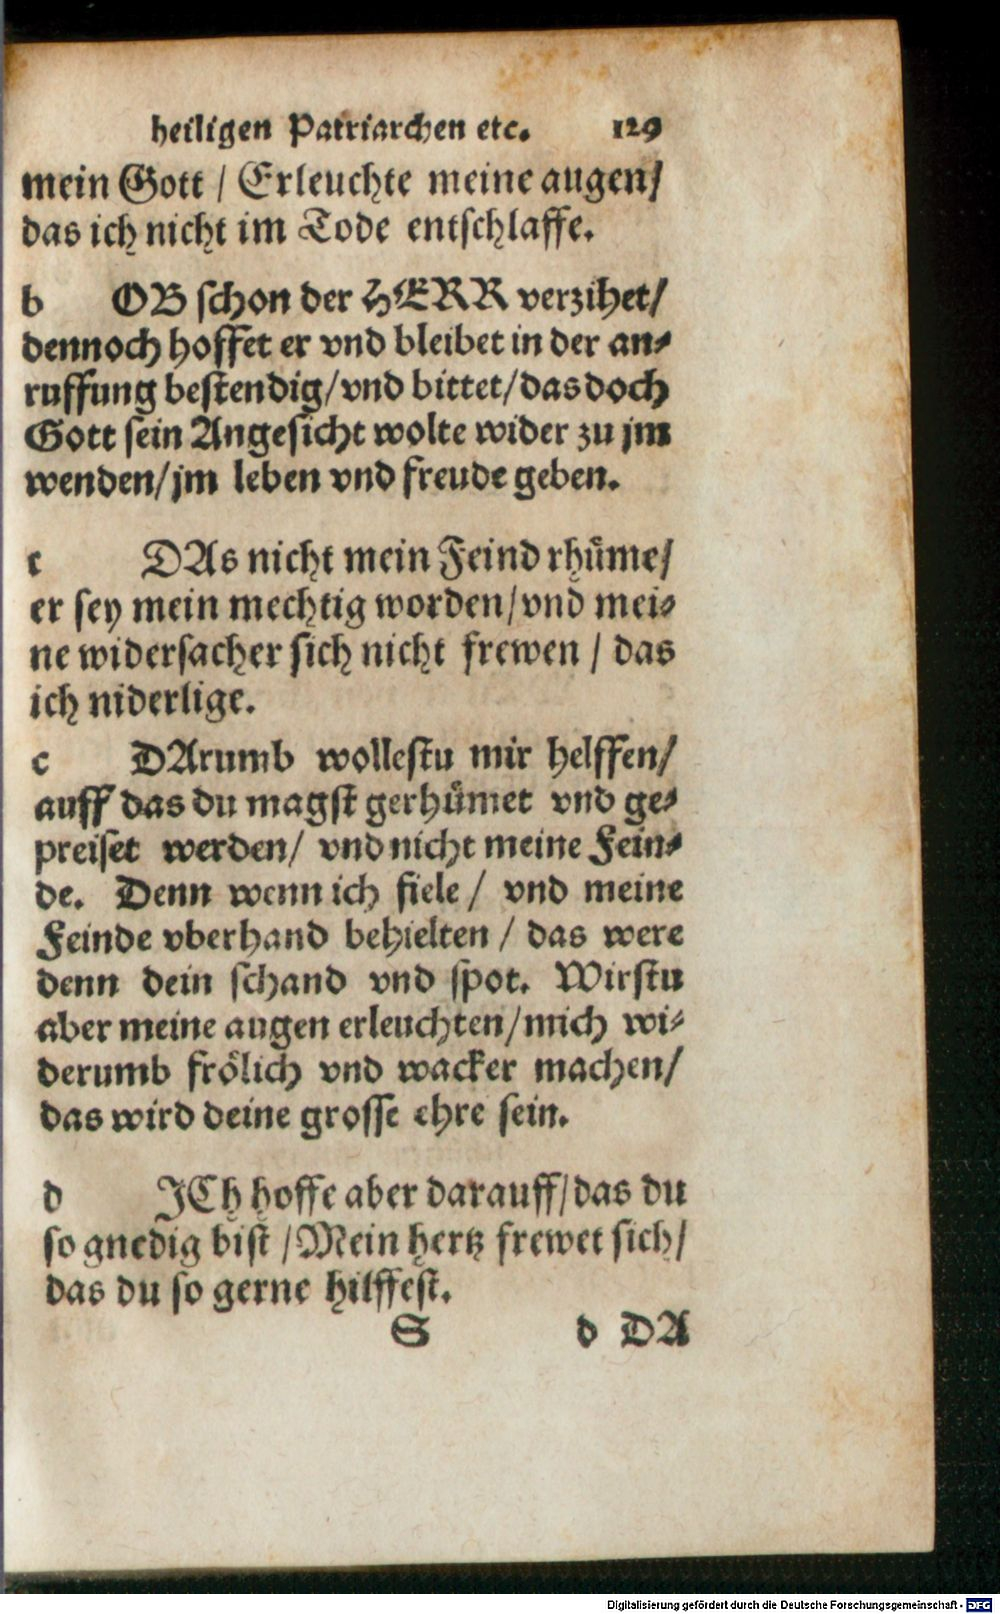 heiligen Patriarchen etc. 129
mein Gott / Erleuchte meine augen/
das ich nicht im Tode entschlaffe.
b OB schon der HERR verzihet/
dennoch hoffet er vnd bleibet in der an⸗
ruffung bestendig/vnd bittet/das doch
Gott sein Angesicht wolte wider zu jm
wenden/jm leben vnd freude geben.
c DAs nicht mein Feind rhüme/
er sey mein mechtig worden/vnd mei⸗
ne widersacher sich nicht frewen / das
ich niderlige.
c DArumb wollestu mir helffen/
auff das du magst gerhümet vnd ge⸗
preiset werden/ vnd nicht meine Fein⸗
de. Denn wenn ich fiele / vnd meine
Feinde vberhand behielten / das were
denn dein schand vnd spot. Wirstu
aber meine augen erleuchten/mich wi⸗
derumb frölich vnd wacker machen/
das wird deine grosse ehre sein.
d JCh hoffe aber darauff/das du
so gnedig bist /Mein hertz frewet sich/
das du so gerne hilffest.
S d DA
Digitalisierung gefördert durch die Deutsche Forschungsgemeinschaft - DFG